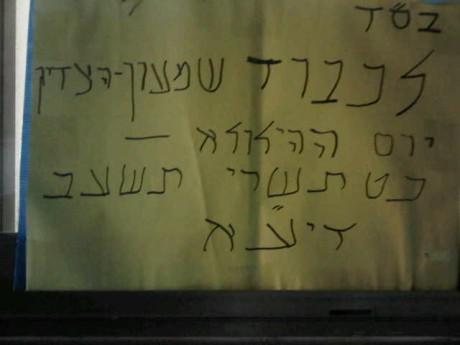 בס״ד
לכבוד שמעון-הצדיק
יום ההילולא —
כט תשרי תשעב
זיע״א